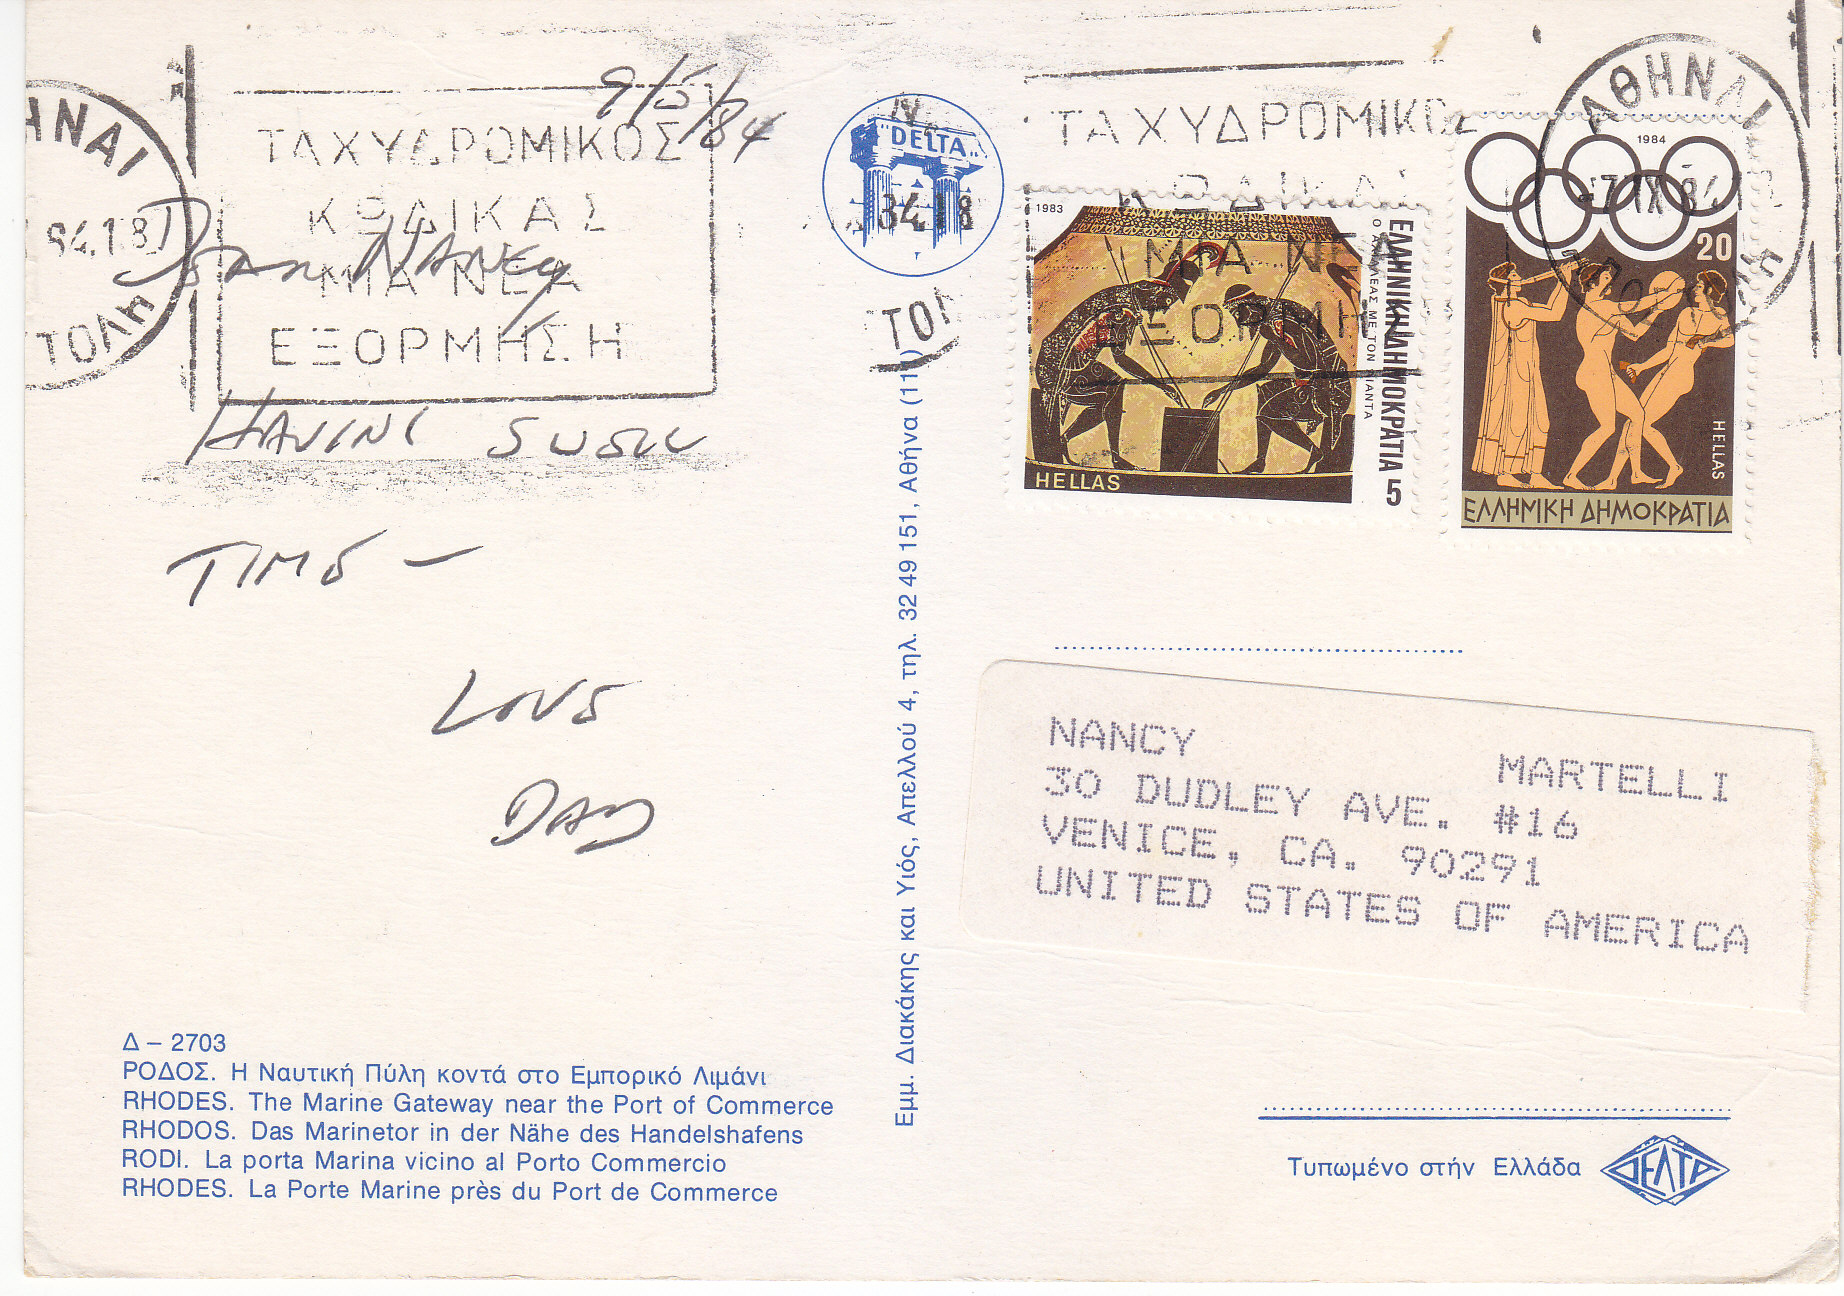 9/5/84
ΑΘΗΝΑΙ
84.18
ΤΑΧΥΔΡΟΜΙΚΟΣ
ΚΩΔΙΚΑΣ
ΜΙΑ ΝΕΑ
ΕΞΟΡΜΗΣΗ
DEAR NANCY
HAVING
TIME -
LOVE
DAD
Δ – 2703
ΡΟΔΟΣ. Η Ναυτική Πύλη κοντά στο Εμπορικό Λιμάνι
RHODES. The Marine Gateway near the Port of Commerce
RHODOS. Das Marinetor in der Nähe des Handelshafens
RODI. La porta Marina vicino al Porto Commercio
RHODES. La Porte Marine près du Port de Commerce
"DELTA"
84.18
Εμμ. Διακάκης και Υιός, Απελλού 4, τηλ. 32 49 151, Αθήνα (111)
ΤΑΧΥΔΡΟΜΙΚΟΣ
ΚΩΔΙΚΑΣ
ΜΙΑ ΝΕΑ
ΕΞΟΡΜΗ
1983
ΕΛΛΗΝΙΚΗ ΔΗΜΟΚΡΑΤΙΑ 5
HELLAS
ΑΘΗΝΑΙ
7 IX 84.1
1984
20
HELLAS
ΕΛΛΗΝΙΚΗ ΔΗΜΟΚΡΑΤΙΑ
NANCY MARTELLI
30 DUDLEY AVE. #16
VENICE, CA. 90291
UNITED STATES OF AMERICA
Τυπωμένο στήν Ελλάδα
ΔΕΛΤΑ